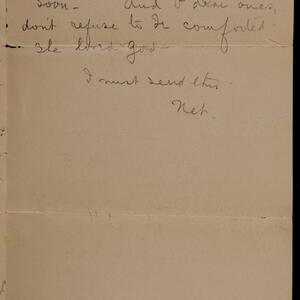 soon - And O dear ones,
don't refuse to be comforted
She loved God -
I must send this -
Net.